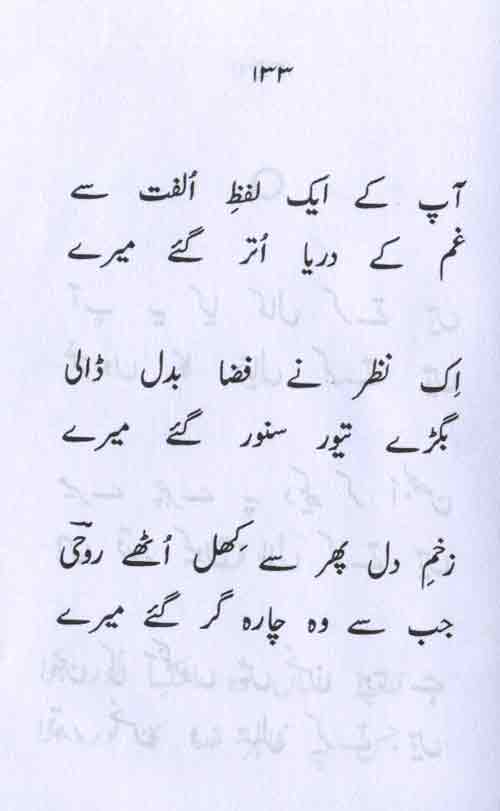 ۱۳۳
آپ کے ایک لفظِ اُلفت سے
غم کے دریا اُتر گئے میرے
اِک نظر نے فضا بدل ڈالی
بگڑے تیور سنور گئے میرے
زخمِ دل پھر سے کِھل اُٹھے روحی
جب سے وہ چارہ گر گئے میرے